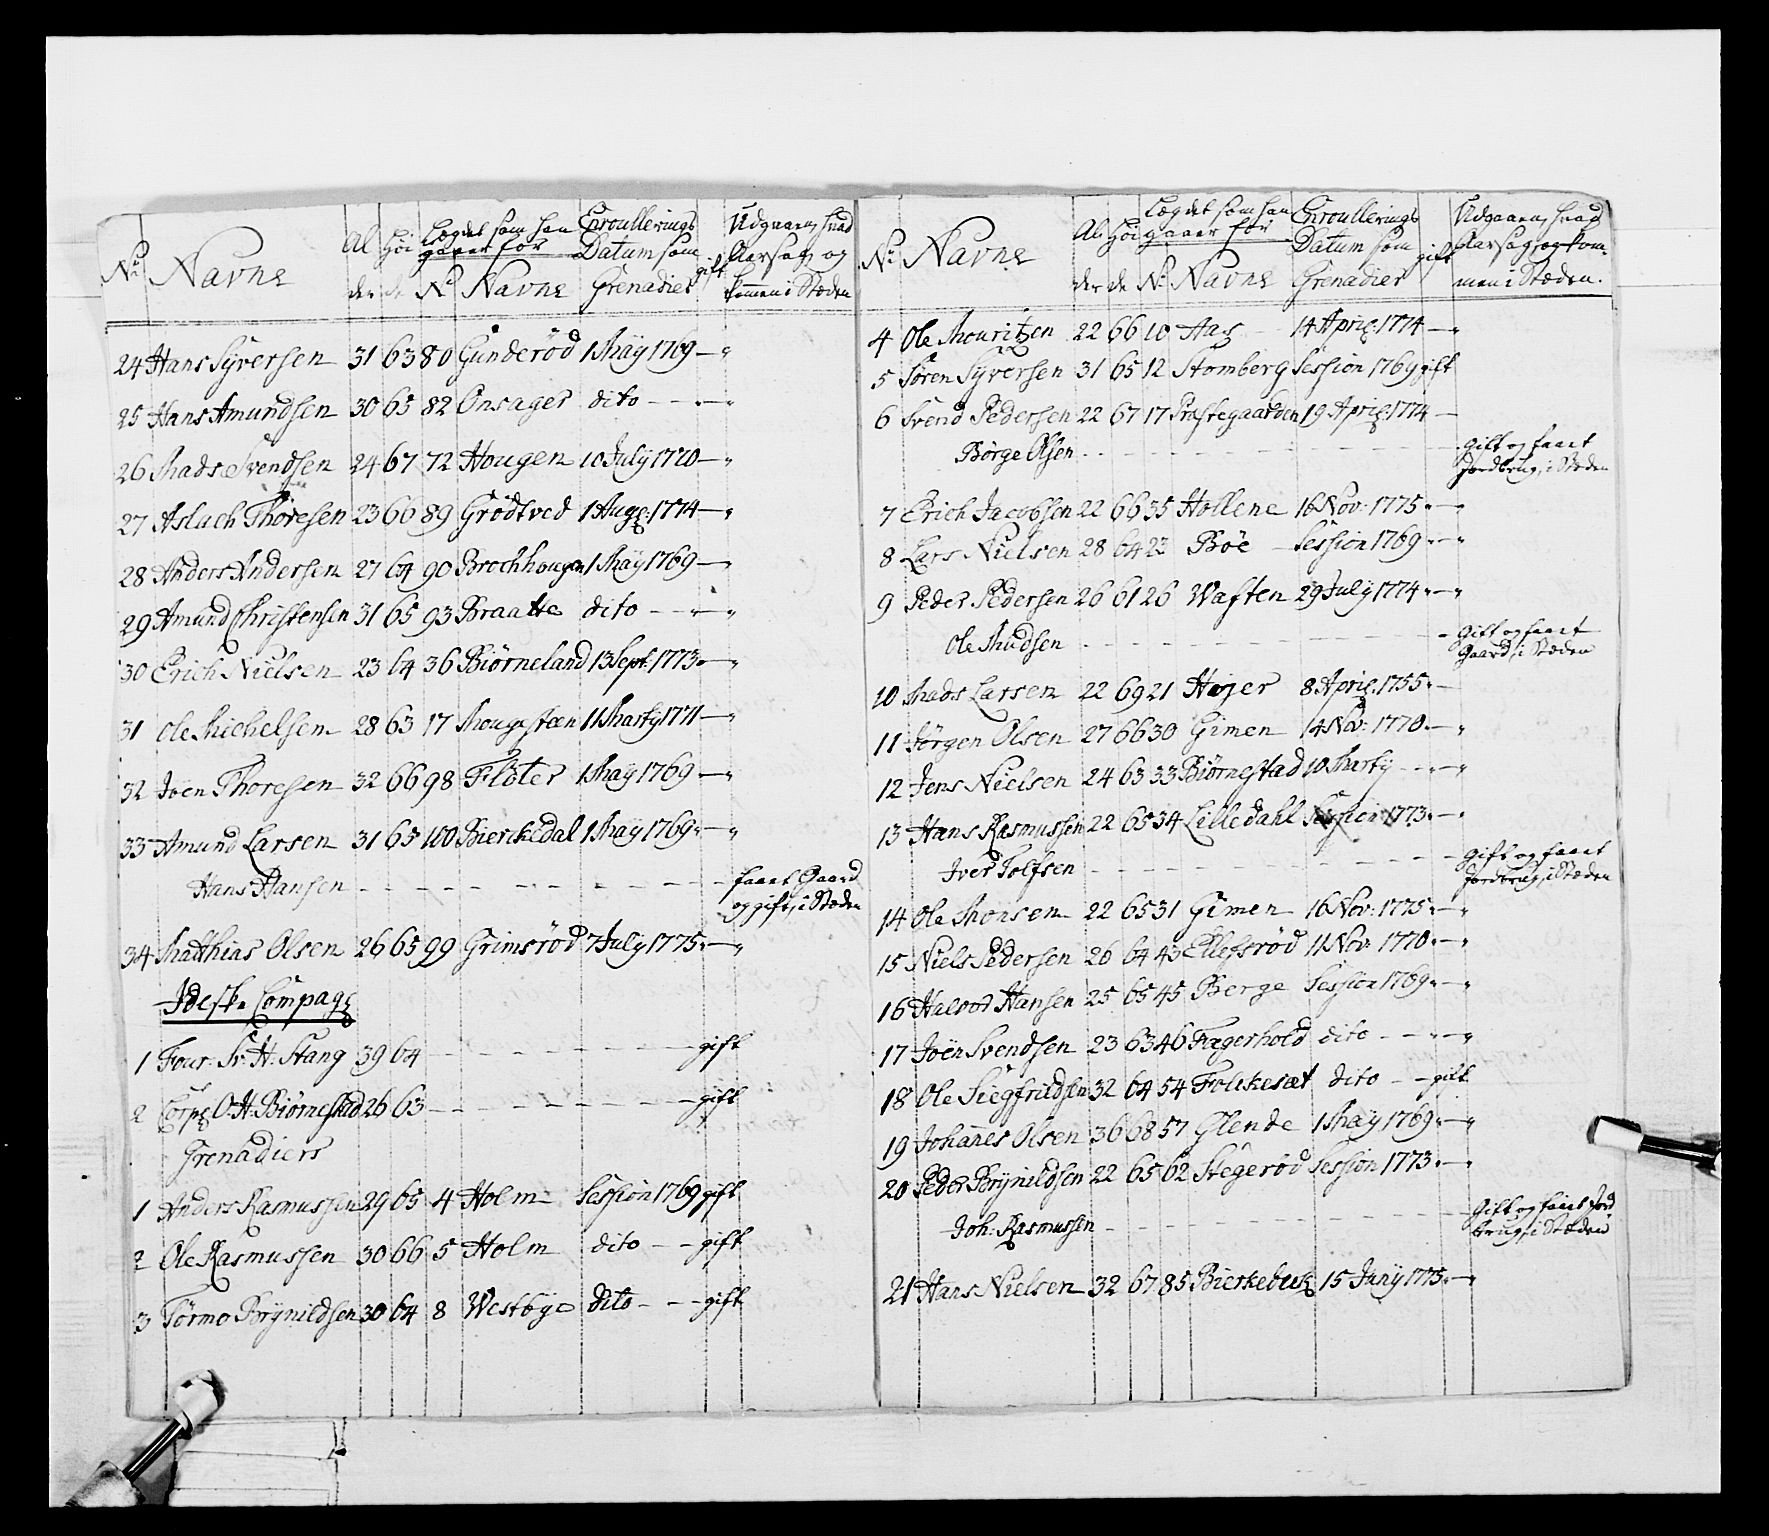 No Navne Al der Høi de Lægdet som han gaaer for No Navne Enroullerings Datum som Grenadier gift Udgaaen, hvad Aarsag, og kommen i Stæden
24 Hans Syversen 31 63 80 Gunderød 1 Maÿ 1769 — "
25 Hans Amundsen 30 65 82 Onsager dito - - - "
26 Mads Svendsen 24 67 72 Hougen 10 July 1770 — "
27 Aslach Thoresen 23 66 89 Grödtved 1 Aug: 1774 — "
28 Anders Andersen 27 64 90 Brochhougen 1 Maÿ 1769 — "
29 Amund Christensen 31 65 93 Braatte dito - - - "
30 Erich Nielsen 23 64 36 Biörneland 13 Sept: 1773 — "
31 Ole Michelsen 28 63 17 Mougestæn 11 Martÿ 1771 — "
32 Joen Thoresen 32 66 98 Flöter 1 Maÿ 1769 — "
33 Amund Larsen 31 65 100 Bierckedal 1 Maÿ 1769 — "
Hans Hansen - - - - - - - - - faaet Gaard
og gift, i Stæden
34 Matthias Olsen 26 65 99 Grimsrød 7 July 1775 — "
Ideske Compag:
1 Four: Sr: H: Stang 39 64 - - - - - - - gift
2 Corp: O. H. Biørnestad 26 63 - - - - - - - gift
Grenadiers
1 Anders Rasmussen 29 65 4 Holm Session 1769 gift
2 Ole Rasmussen 30 66 5 Holm dito - - gift
3 Tørmo Brynildsen 30 64 8 Westbye dito - - - gift
No Navne Al der Høi de Lægdet som han gaaer for No Navne Enroullerings Datum som Grenadier gift Udgaaen, hvad Aarsag, og kommen i Stæden.
4 Ole Mouritzen 22 66 10 Aas 14 April 1774 — "
5 Sören Syversen 31 65 12 Stomberg Session 1769 gift
6 Svend Pedersen 22 67 17 Præstegaarden 19 April 1774 —
Börge Olsen - - - - - - - - - gift og faaet
Jordbrug, i Stæden
7 Erich Jacobsen 22 66 35 Hollene 16 Nov: 1775 — "
8 Lars Nielsen 28 64 23 Böe Session 1769 — "
9 Peder Pedersen 26 61 26 Waften 29 July 1774 — "
Ole Knudsen - - - - - - - - - Gift og faaet
Gaard, i Stæden
10 Mads Larsen 22 69 21 Høyer 8 April 1755 —
11 Jörgen Olsen 27 66 30 Gimen 14 Nov: 1770 — "
12 Jens Nielsen 24 63 33 Biörnestad 10 Martÿ - - - "
13 Hans Rasmussen 22 65 34 Lilledahl Session 1773 — "
Iver Tolfsen - - - - - - - - - gift og faaet
Jordbrug, i Stæden
14 Ole Monsen 22 65 31 Gimen 16 Nov: 1775 — "
15 Niels Pedersen 26 64 43 Ellefsrød 11 Nov 1770 — "
16 Halvor Hansen 25 65 45 Berge Session 1769 — "
17 Joën Svendsen 23 63 46 Fagerhold dito - - - "
18 Ole Siegfriedsen 32 64 54 Folckesæt dito - - gift
19 Johanes Olsen 36 68 57 Glende 1 Maÿ 1769 — "
20 Peder Brynildsen 22 65 62 Stegerød Session 1773 — "
Joh: Rasmussen - - - - - - - - - gift og faaet Jord
brug, i Stæden
21 Hans Nielsen 32 67 85 Bierkebek 15 Juny 1775 — "